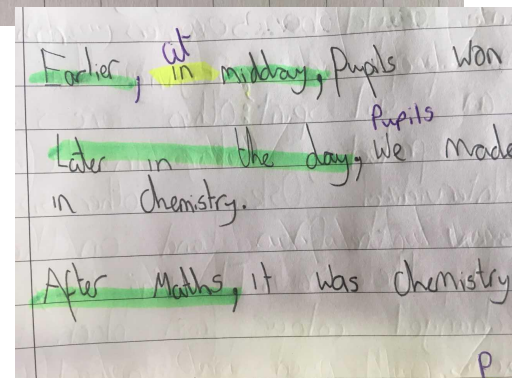 at
Earlier, in midday, Pupils won
Pupils
Later in the day, We made
in Chemistry.
After Maths, it was Chemistry
P